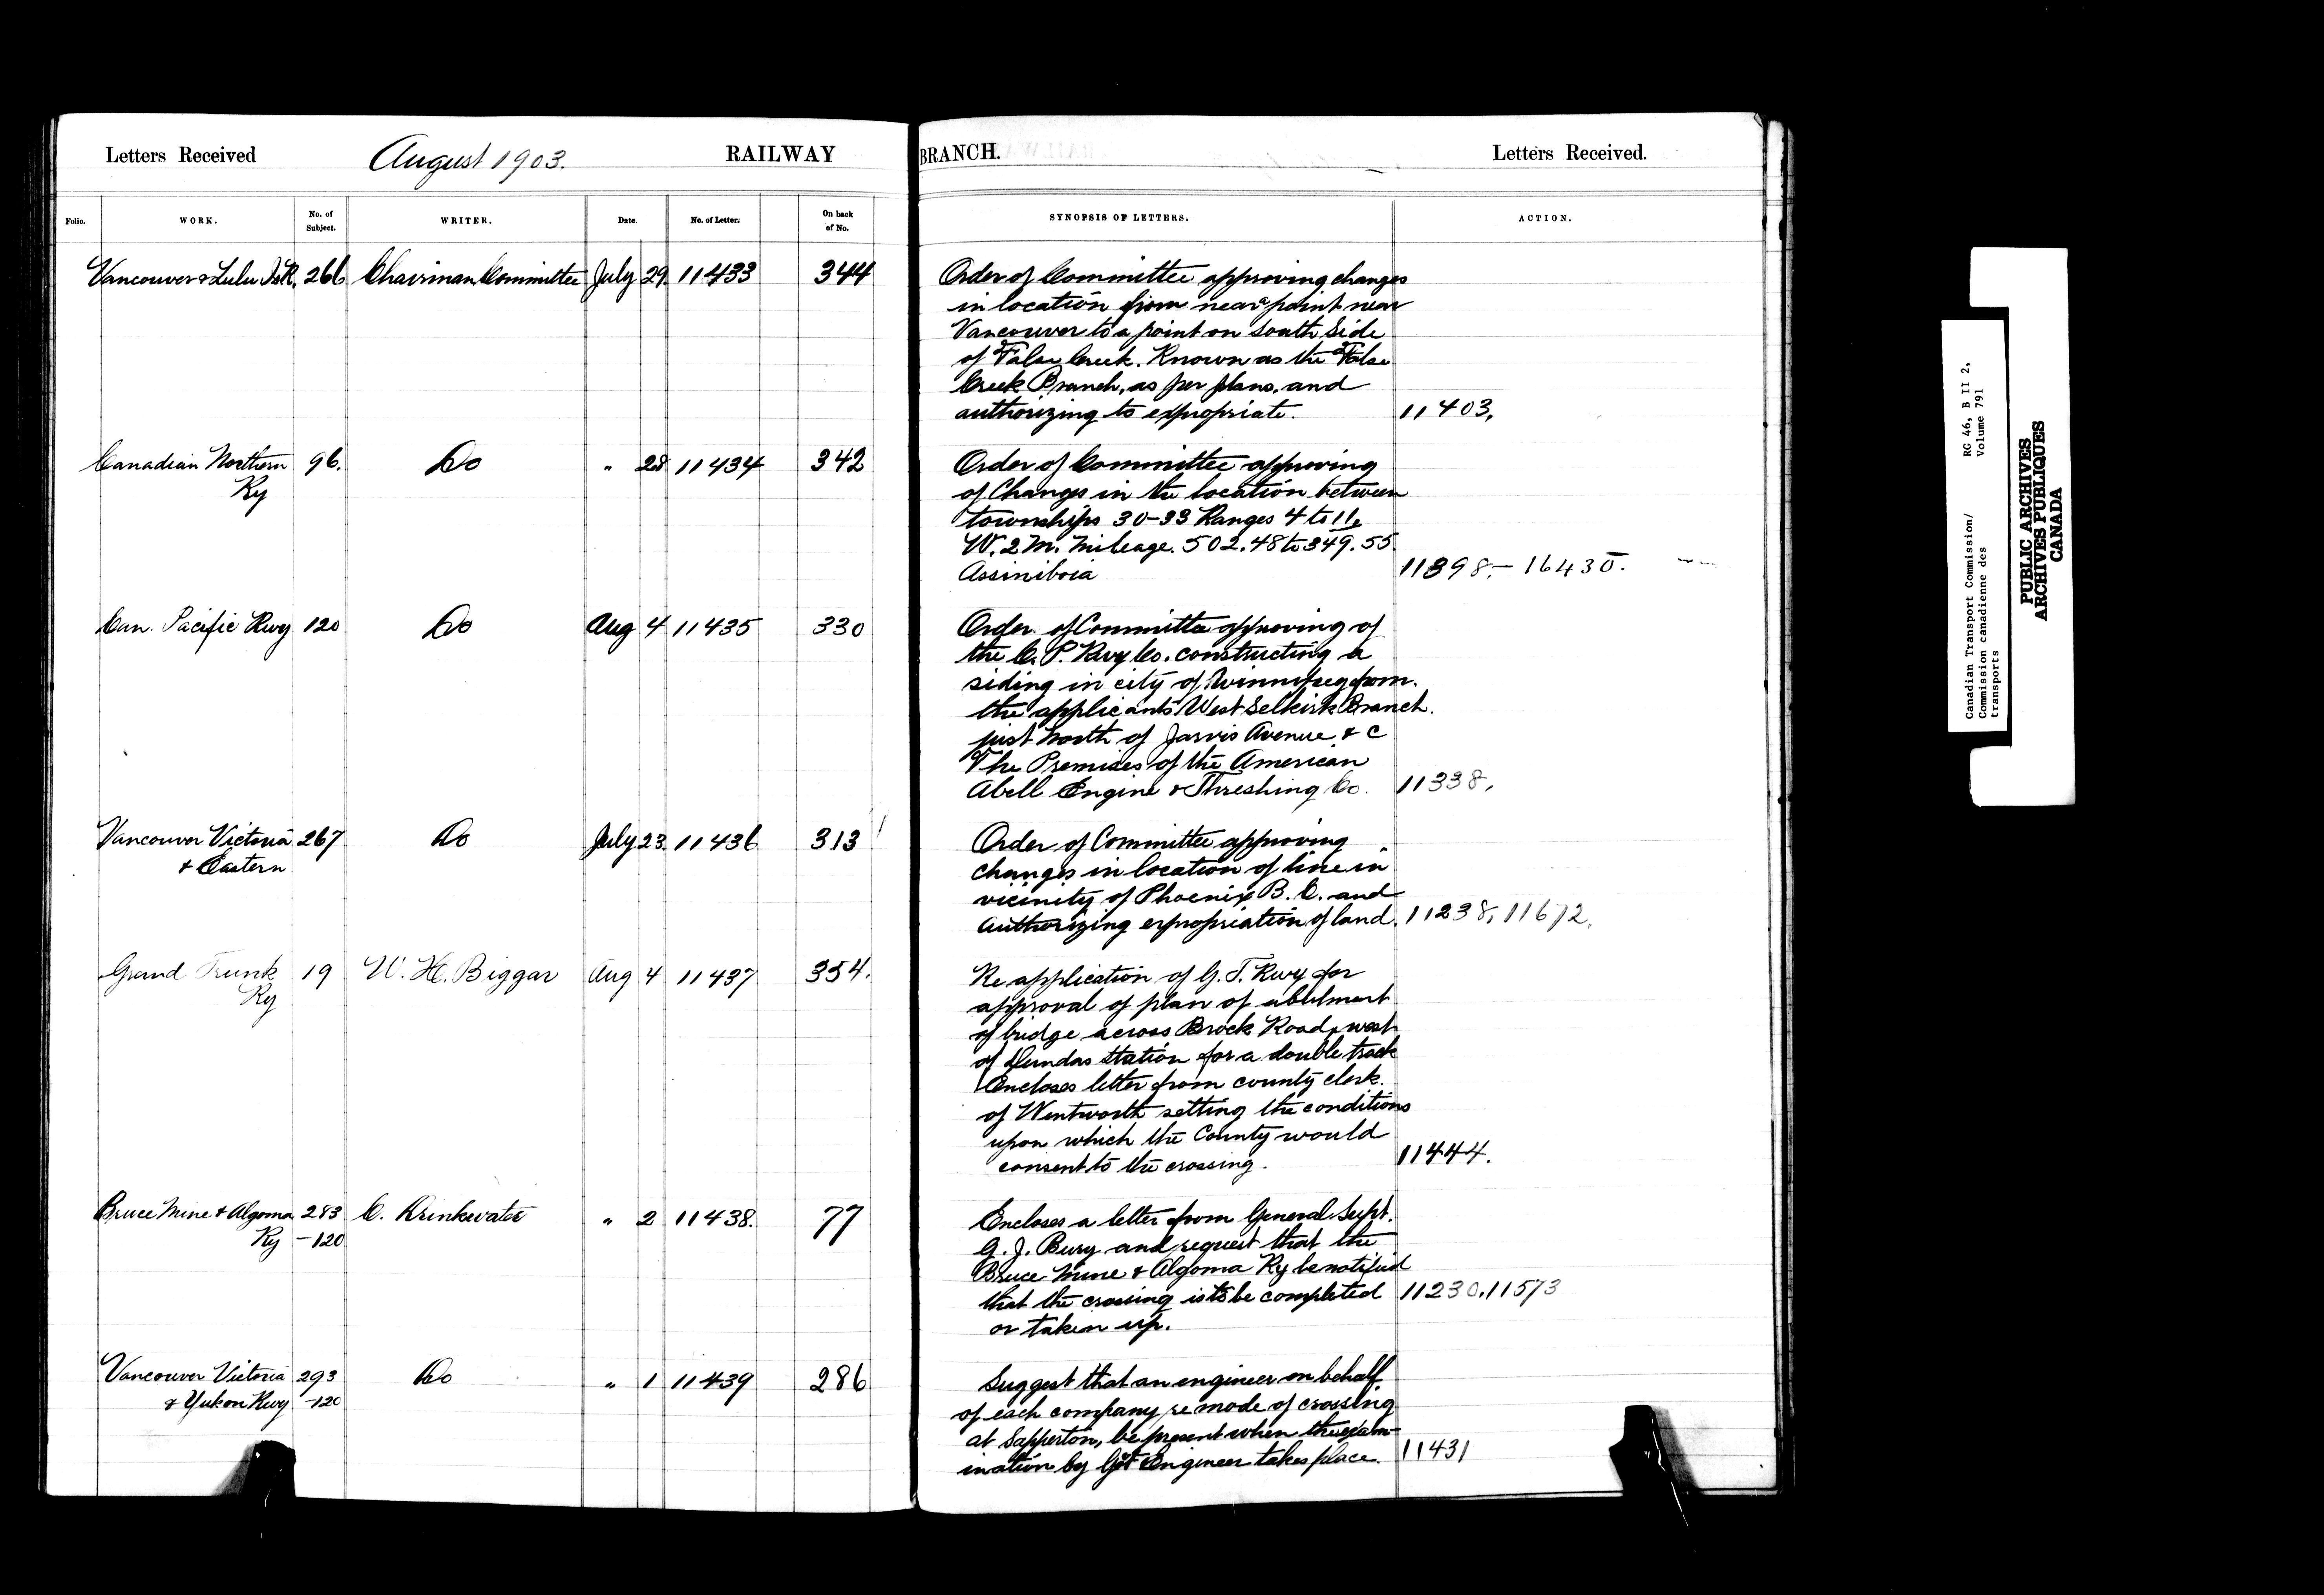 Letters Received August 1903. RAILWAY BRANCH. Letters Received.
Folio. WORK. No. of Subject. WRITER. Date. No. of Letter. On back of No. SYNOPSIS OF LETTERS. ACTION.
Vancouver & Lulu Is R. 266 Chairman Committee July 29. 11433 344 Order of Committee approving changes
in location from near a point near
Vancouver to a point on South Side
of False Creek. Known as the False
Creek Branch, as per plans, and
authorizing to expropriate. 11403,
Canadian Northern 96. Do " 28 11434 342 Order of Committee approving
Ry of Changes in the location between
townships 30-33 Ranges 4 to 11,
W. 2 M. Mileage. 502.48 to 349.55.
Assiniboia 11398.- 16435.
Can. Pacific Rwy 120 Do Aug 4 11435 330 Order of Committee approving of
the C. P. Rwy Co. constructing a
siding in city of Winnipeg from.
the applicants West Selkirk Branch.
just North of Jarvis Avenue & C
The Premises of the American
Abell Engine & Threshing Co. 11338,
Vancouver Victoria 267 Do July 23. 11436 313 Order of Committee approving
& Eastern changes in location of line in
vicinity of Phoenix B. C. and
Authorizing expropriation of land. 11238, 11672,
Grand Trunk 19 W. H. Biggar Aug 4 11437 354. Re application of G. T. Rwy for
Ry approval of plan of abutment
of bridge across Brock Road, west
of Dundas Station for a double track
Encloses letter from county clerk.
of Wentworth setting the conditions
upon which the County would
consent to the crossing. 11444.
Bruce Mine & Algoma 283 C. Drinkwater " 2 11438. 77 Encloses a letter from General Supt.
Ry -120 G. J. Bury and request that the
Bruce Mine & Algoma Ry be notified
that the crossing is to be completed 11230, 11573
or taken up.
Vancouver Victoria 293 Do " 1 11439 286 Suggest that an engineer on behalf
& Yukon Rwy -120 of each company re mode of crossing
at Sapperton, be present when the exam-
ination by Gvt Engineer takes place. 11431
Canadian Transport Commission/
Commission canadienne des
transports
RG 46, B II 2,
Volume 791
PUBLIC ARCHIVES
ARCHIVES PUBLIQUES
CANADA